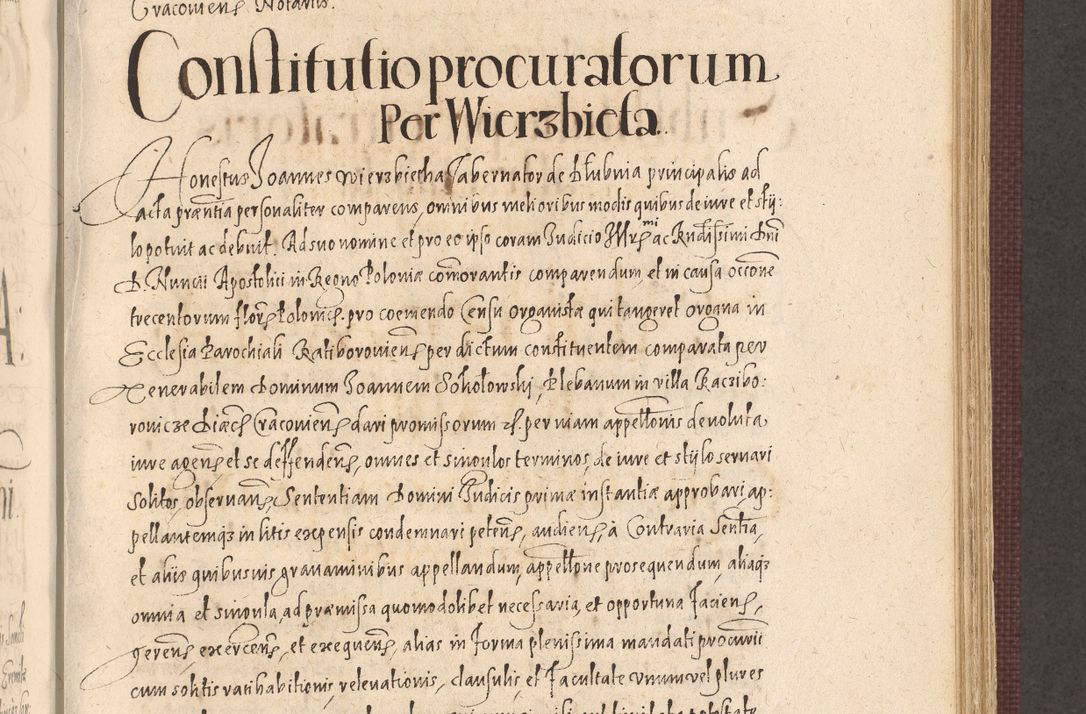 Cracovien Notariis.
Constitutio procuratorum
Per Wierzbieta
Honestus Joannes Wierzbietha Tabernator de Hlubnia principalis ad
acta præntia personaliter comparens, omnibus melioribus modis quibus de iure et stÿ:
lo potuit ac debuit. Ad suo nomine et pro eo ipso coram Judicio Illr mi ac Rndissimi Dni
D. Nuncii Apostolici in Regno Poloniæ comorantis comparendum, et in causa occõne
trecentorum floren Polonic. pro coemendo Censu organistæ qui tangeret organa in
Ecclesia Parochiali Ratiborovien per dictum constituentem comparata per
Venerabilem Dominum Joannem Sokołowski, Plebanum in villa Raczibo:
rovicze Diæc Cracovien dari promissorum per viam appellõnis devoluta,
iure agen et se deffenden, omnes et singulos terminos, de iure et stÿlo servari
solitos, observan, Sententiam Domini Judicis primæ instantiæ approbari, ap:
pellantemqz in litis expensis condemnari peten, audien, à Contraria Sentia,
et aliis quibusvis gravaminibus appellandum, appellone prosequendum, aliaqz
omnia et singula, ad præmissa quomodolibet necessaria, et opportuna facien,
geren, exercen, et exequen, alias in forma plenissima mandati procurii
cum solitis ratihabitionis, relevationis, clausulis, et facultate unum vel plures